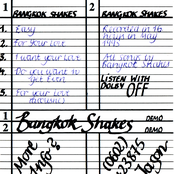 1
BANGKOK SHAKES
1. Easy
2. For Your Love
3. I want your Love
4. Do you want to get Even
5. For your Love
2
BANGKOK SHAKES
Recorded in 16
hours in May
1995
All songs by
Bangkok Shakes
LISTEN WITH
DOLBY OFF
1
2
Bangkok Shakes
DEMO
DEMO
More
Info?
(0602)
Jason